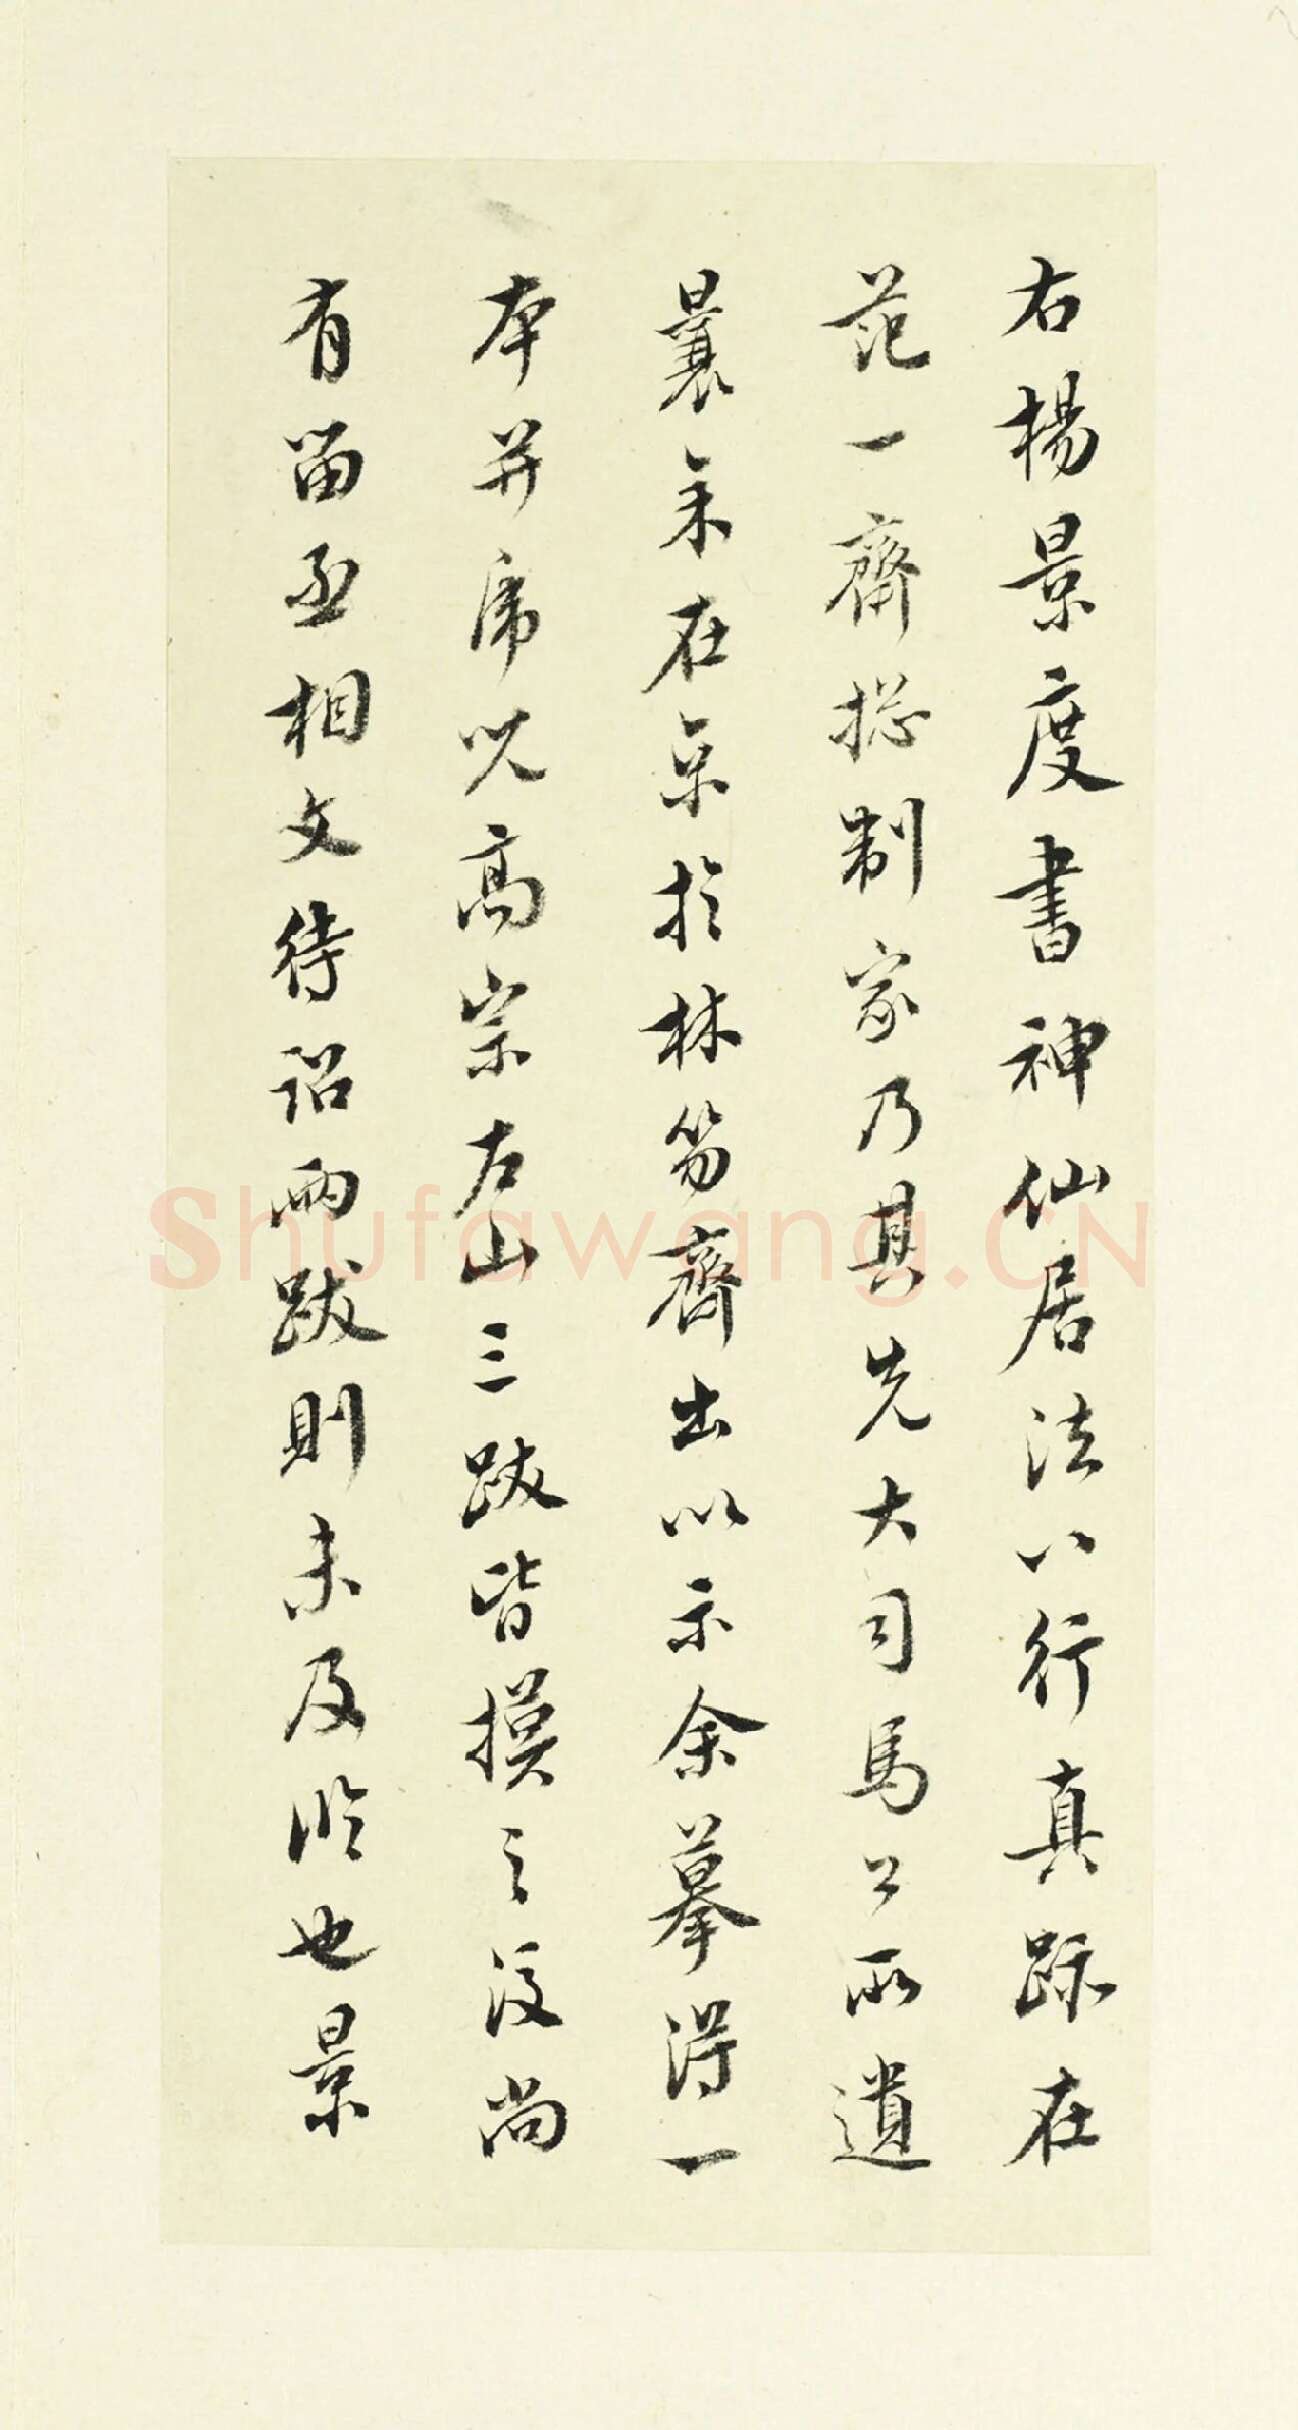 右楊景度書神仙居法八行真跡在
范一齋捴制家乃其先大司馬公所遺
曩余在京於林笏齋出以示余摹得一
本并席光高宗左山三跋皆摸之後尚
有留丞相文待詔兩跋則未及臨也景
Shufawang.CN